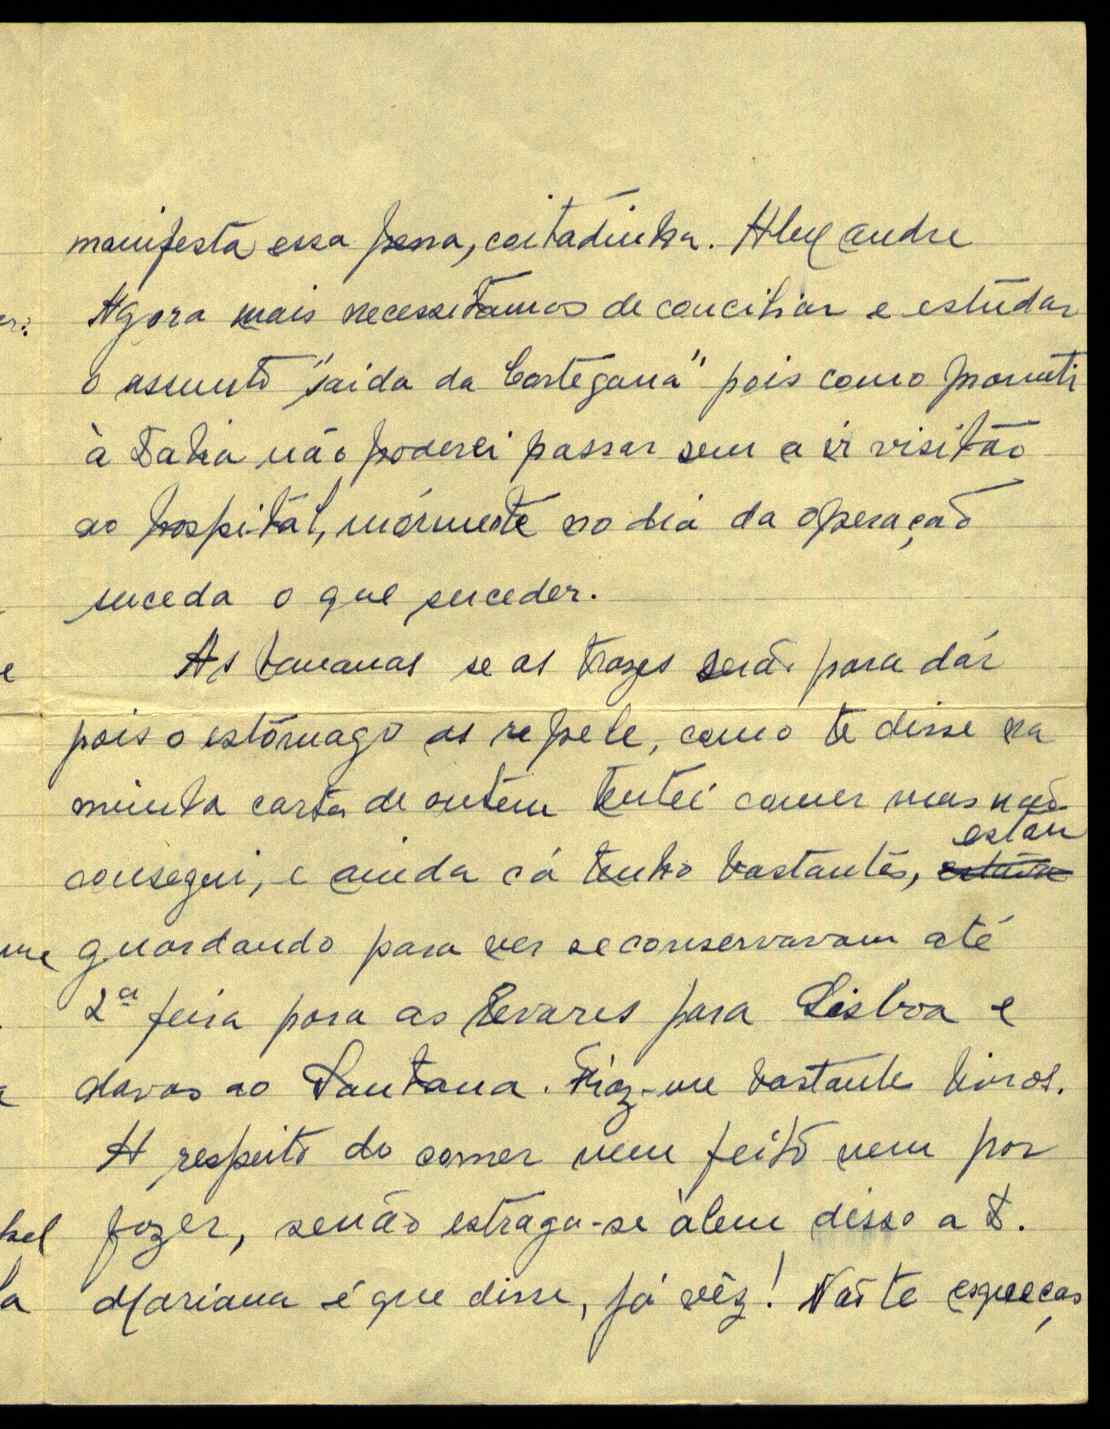 manifesta essa pena, coitadinha. Alexandre
Agora mais necessitamos de conciliar e estudar
o assunto "saida da Cortegana" pois como promēti
à Dalia não poderei passar sem a ir visitão
ao hospital, mórmente no dia da operação
suceda o que suceder.
As bananas se as trazes será para dár
pois o estômago as repele, como te disse na
minha carta de ontem tentei comer mas não
estou
consegui, e ainda cá tenho bastantes,
guardando para ver se conservavam até
2ª feira para as levares para Lisboa e
davas ao Santana. Fiaz-me bastante livros.
A respeito do comer nem feito nem por
fazer, senão estraga-se àlem disso a D.
Mariana é que disse, já vêz! Não te esqueças